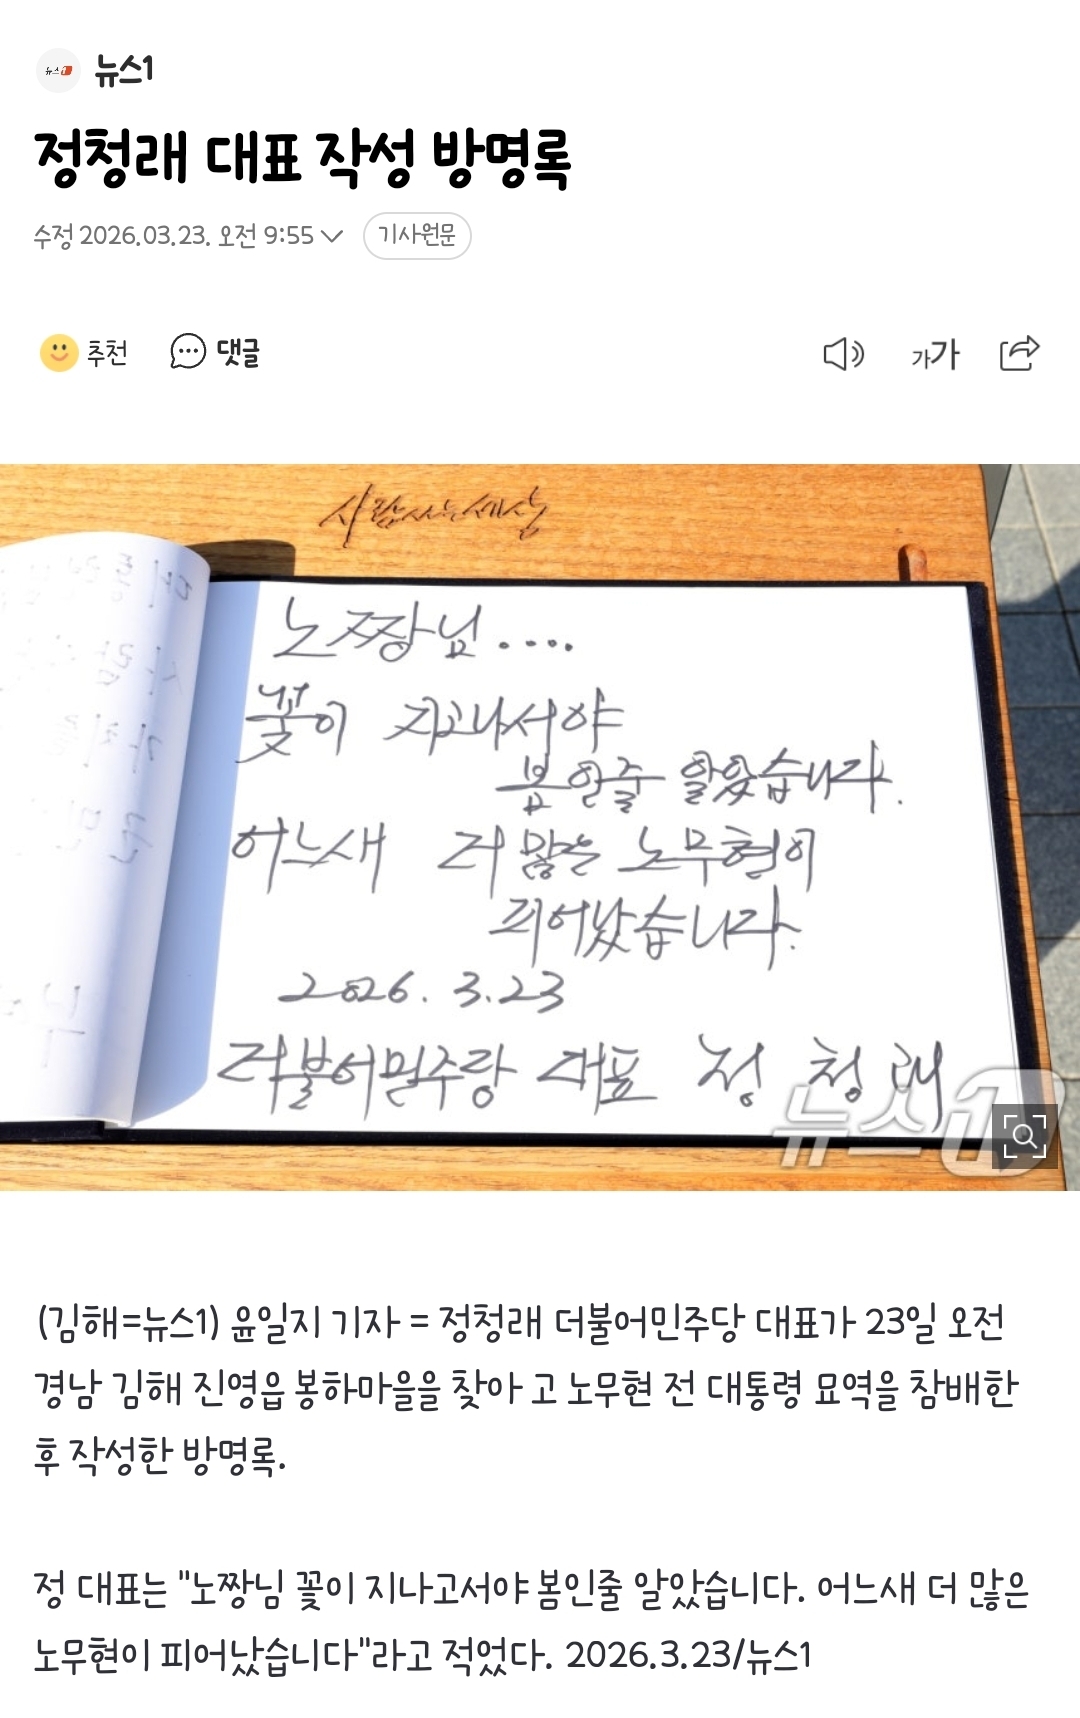 뉴스1
뉴스1
정청래 대표 작성 방명록
수정 2026.03.23. 오전 9:55
기사원문
추천
댓글
가가
사람사는세상
노짱님....
꽃이 지고나서야
봄인줄 알았습니다.
어느새 더 많은 노무현이
피어났습니다.
2026. 3.23
더불어민주당 대표 정청래
뉴스1
(김해=뉴스1) 윤일지 기자 = 정청래 더불어민주당 대표가 23일 오전
경남 김해 진영읍 봉하마을을 찾아 고 노무현 전 대통령 묘역을 참배한
후 작성한 방명록.
정 대표는 "노짱님 꽃이 지나고서야 봄인줄 알았습니다. 어느새 더 많은
노무현이 피어났습니다"라고 적었다. 2026.3.23/뉴스1